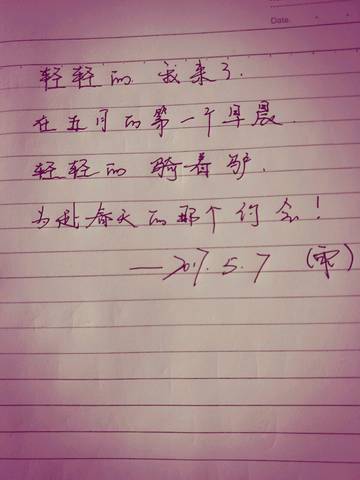 Date.
轻轻的 我来了.
在五月的第一个早晨.
轻轻的 骑着驴,
为赴春天的那个约会!
—2017.5.7